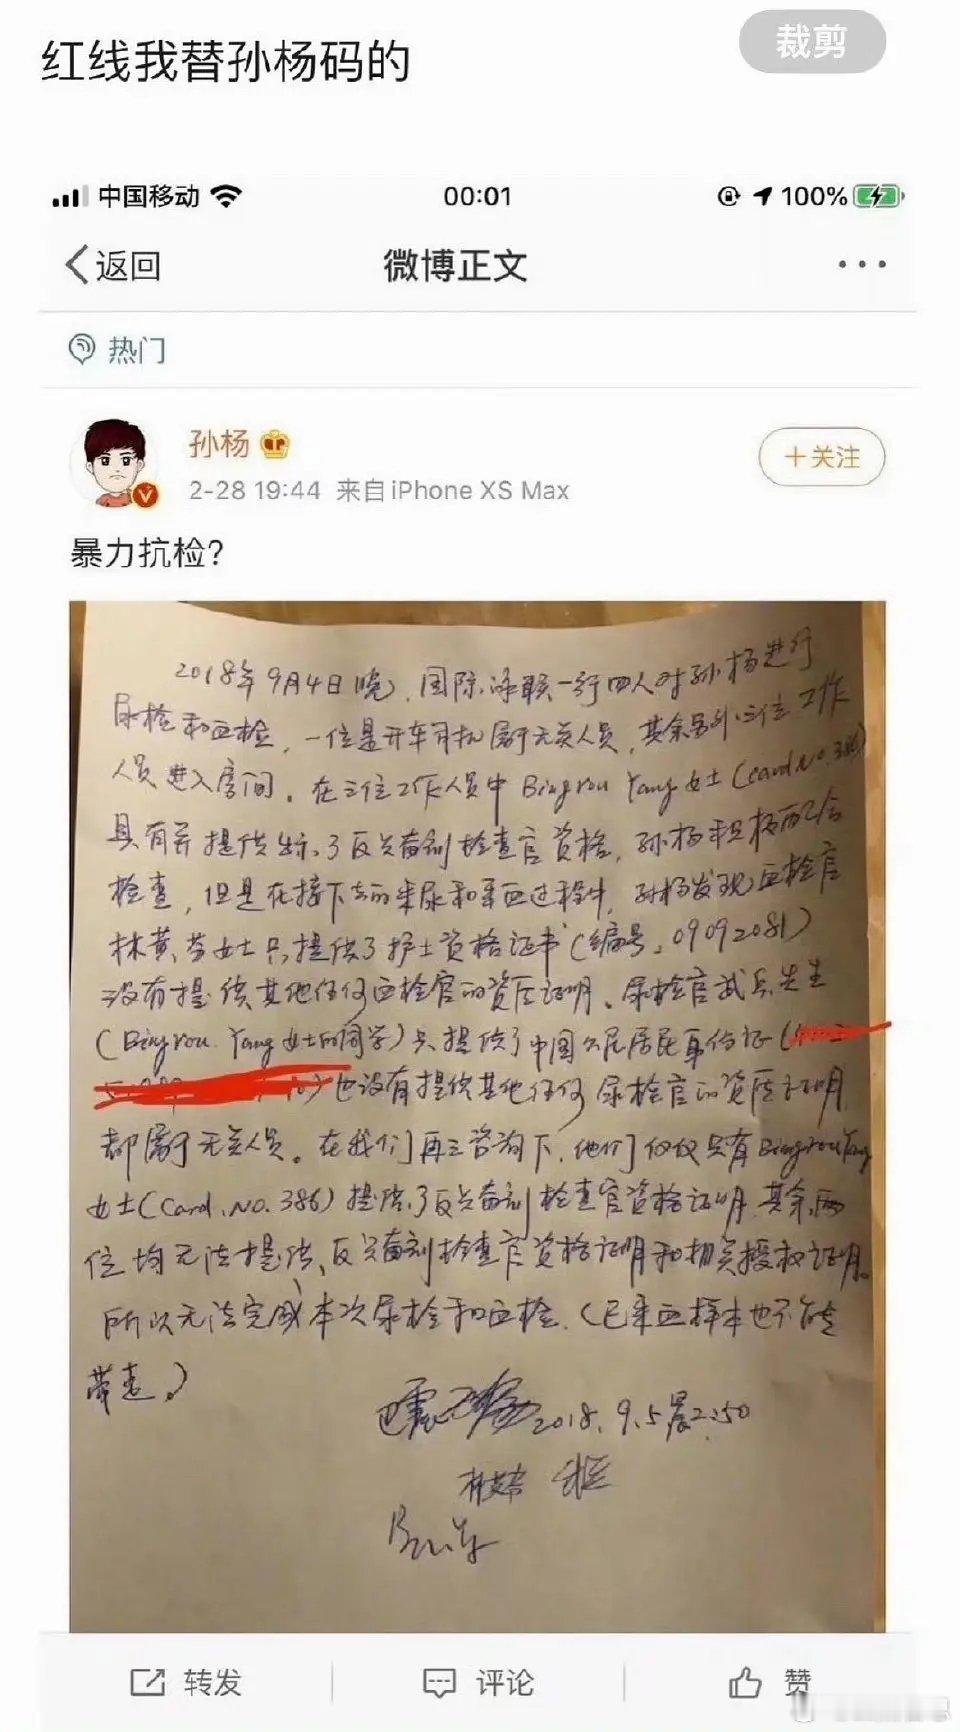 红线我替孙杨码的
裁剪
中国移动
00:01
100%
返回
微博正文
热门
孙杨
+关注
2-28 19:44 来自 iPhone XS Max
暴力抗检?
2018年9月4日晚,国际泳联一行四人对孙杨进行
尿检和血检,一位是开车司机属于无关人员,其余另外三位工作
人员进入房间。在三位工作人员中 Bingrou Yang 女士(card No.386)
具有并提供出示了反兴奋剂检查官资格,孙杨积极配合
检查,但是在接下去的采尿和采血过程中,孙杨发现血检官
林黄 女士只提供了护士资格证书(编号:09092081)
没有提供其他任何血检官的资质证明。尿检官 先生
(Bingrou Yang 女士的同学)只提供了中国公民居民身份证(
)也没有提供其他任何尿检官的资质证明
都属于无关人员。在我们再三咨询下,他们仅仅只有Bingrou Yang
女士(Card.No.386)提供了反兴奋剂检查官资格证明,其余两
位均无法提供反兴奋剂检查官资格证明和相关授权证明。
所以无法完成本次尿检和血检.(已采血样本也不能
带走。)
2018.9.5晨2:50
转发
评论
赞